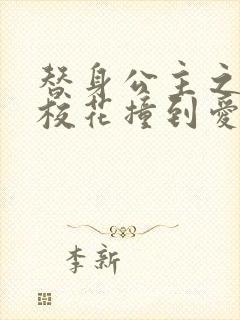 替身公主之
校花撞到爱
李新